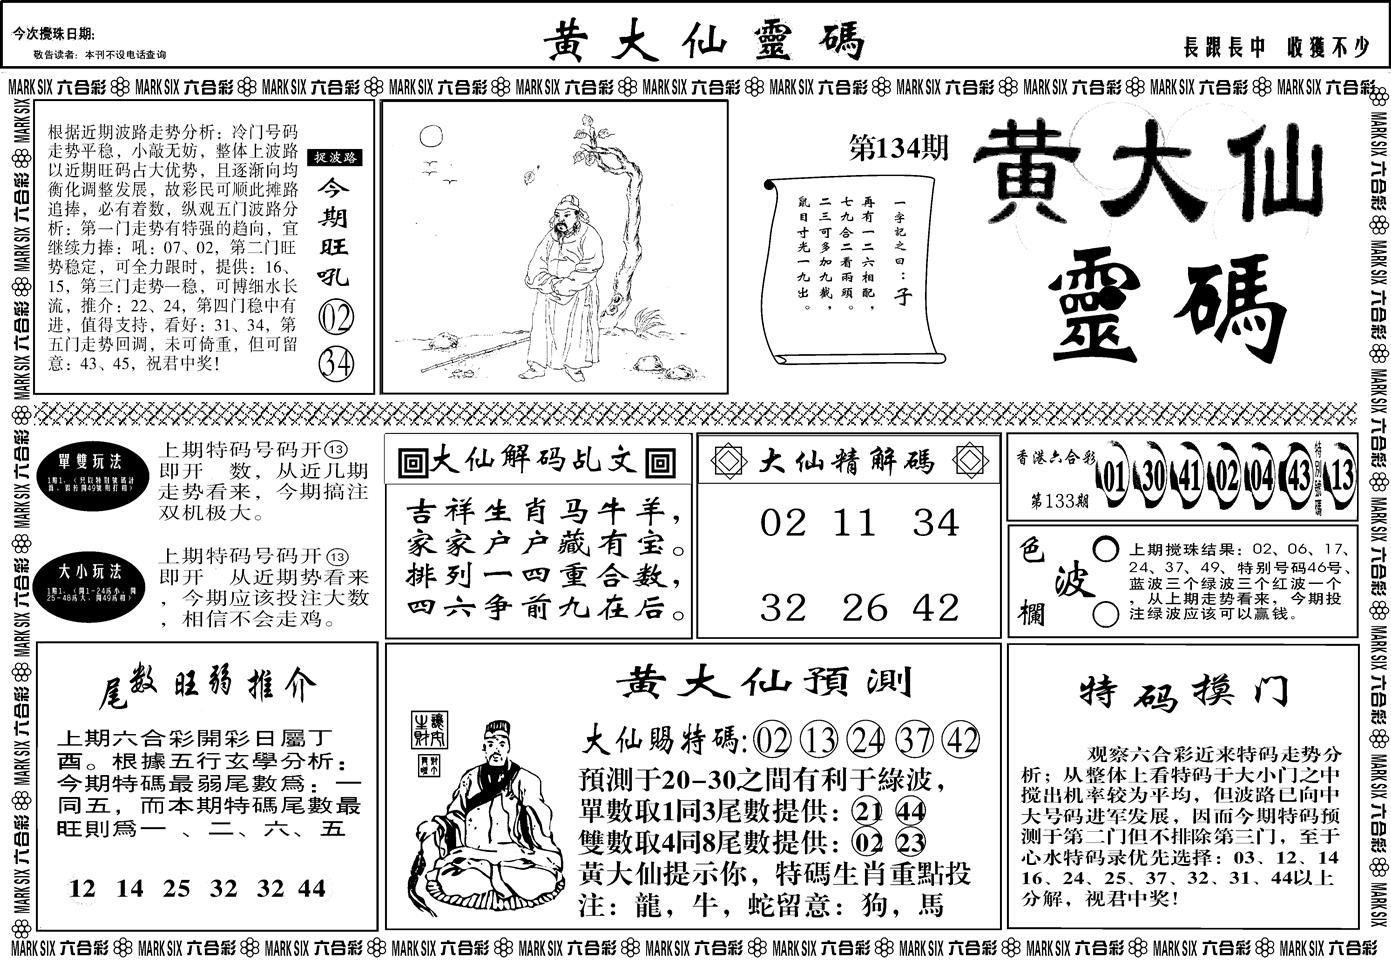 今次攪珠日期:
敬告读者：本刊不设电话查询
黃大仙靈碼
長跟長中 收獲不少
MARK SIX 六合彩 MARK SIX 六合彩 MARK SIX 六合彩 MARK SIX 六合彩 MARK SIX 六合彩 MARK SIX 六合彩 MARK SIX 六合彩 MARK SIX 六合彩 MARK SIX 六合彩 MARK SIX 六合彩 MARK SIX 六合彩
根据近期波路走势分析：冷门号码
走势平稳，小敲无妨，整体上波路
以近期旺码占大优势，且逐渐向均
衡化调整发展，故彩民可顺此摊路
追捧，必有着数，纵观五门波路分
析：第一门走势有特强的趋向，宜
继续力捧：吼：07、02，第二门旺
势稳定，可全力跟时，提供：16、
15，第三门走势一稳，可博细水长
流，推介：22、24，第四门稳中有
进，值得支持，看好：31、34，第
五门走势回调，未可倚重，但可留
意：43、45，祝君中奖！
捉波路
今期旺吼
02
34
第134期
一字記之曰：子
再有一二六相配，
七九合二看兩頭。
二三可多加九截，
鼠目寸光一九出。
黃大仙
靈碼
單雙玩法
上期特码号码开⑬
即开 数，从近几期
走势看来，今期搞注
双机极大。
大小玩法
上期特码号码开⑬
即开 从近期势看来
，今期应该投注大数
，相信不会走鸡。
大仙解码乩文
吉祥生肖马牛羊，
家家户户藏有宝。
排列一四重合数，
四六争前九在后。
大仙精解碼
02 11 34
32 26 42
香港六合彩
第133期
01 30 41 02 04 43
特别號碼
13
色波欄
上期搅珠结果：02、06、17、
24、37、49、特别号码46号、
蓝波三个绿波三个红波一个
，从上期走势看来，今期投
注绿波应该可以赢钱。
尾数旺弱推介
上期六合彩開彩日屬丁
酉。根據五行玄學分析：
今期特碼最弱尾數爲：一
同五，而本期特碼尾數最
旺則爲一 、二、六、五
12 14 25 32 32 44
黃大仙預測
大仙賜特碼:02 13 24 37 42
預測于20-30之間有利于綠波，
單數取1同3尾數提供：21 44
雙數取4同8尾數提供：02 23
黃大仙提示你，特碼生肖重點投
注：龍，牛，蛇留意：狗，馬
特码摸门
观察六合彩近来特码走势分
析；从整体上看特码于大小门之中
搅出机率较为平均，但波路已向中
大号码进军发展，因而今期特码预
测于第二门但不排除第三门，至于
心水特码录优先选择：03、12、14
16、24、25、37、32、31、44以上
分解，祝君中奖！
MARK SIX 六合彩 MARK SIX 六合彩 MARK SIX 六合彩 MARK SIX 六合彩 MARK SIX 六合彩 MARK SIX 六合彩 MARK SIX 六合彩 MARK SIX 六合彩 MARK SIX 六合彩 MARK SIX 六合彩 MARK SIX 六合彩